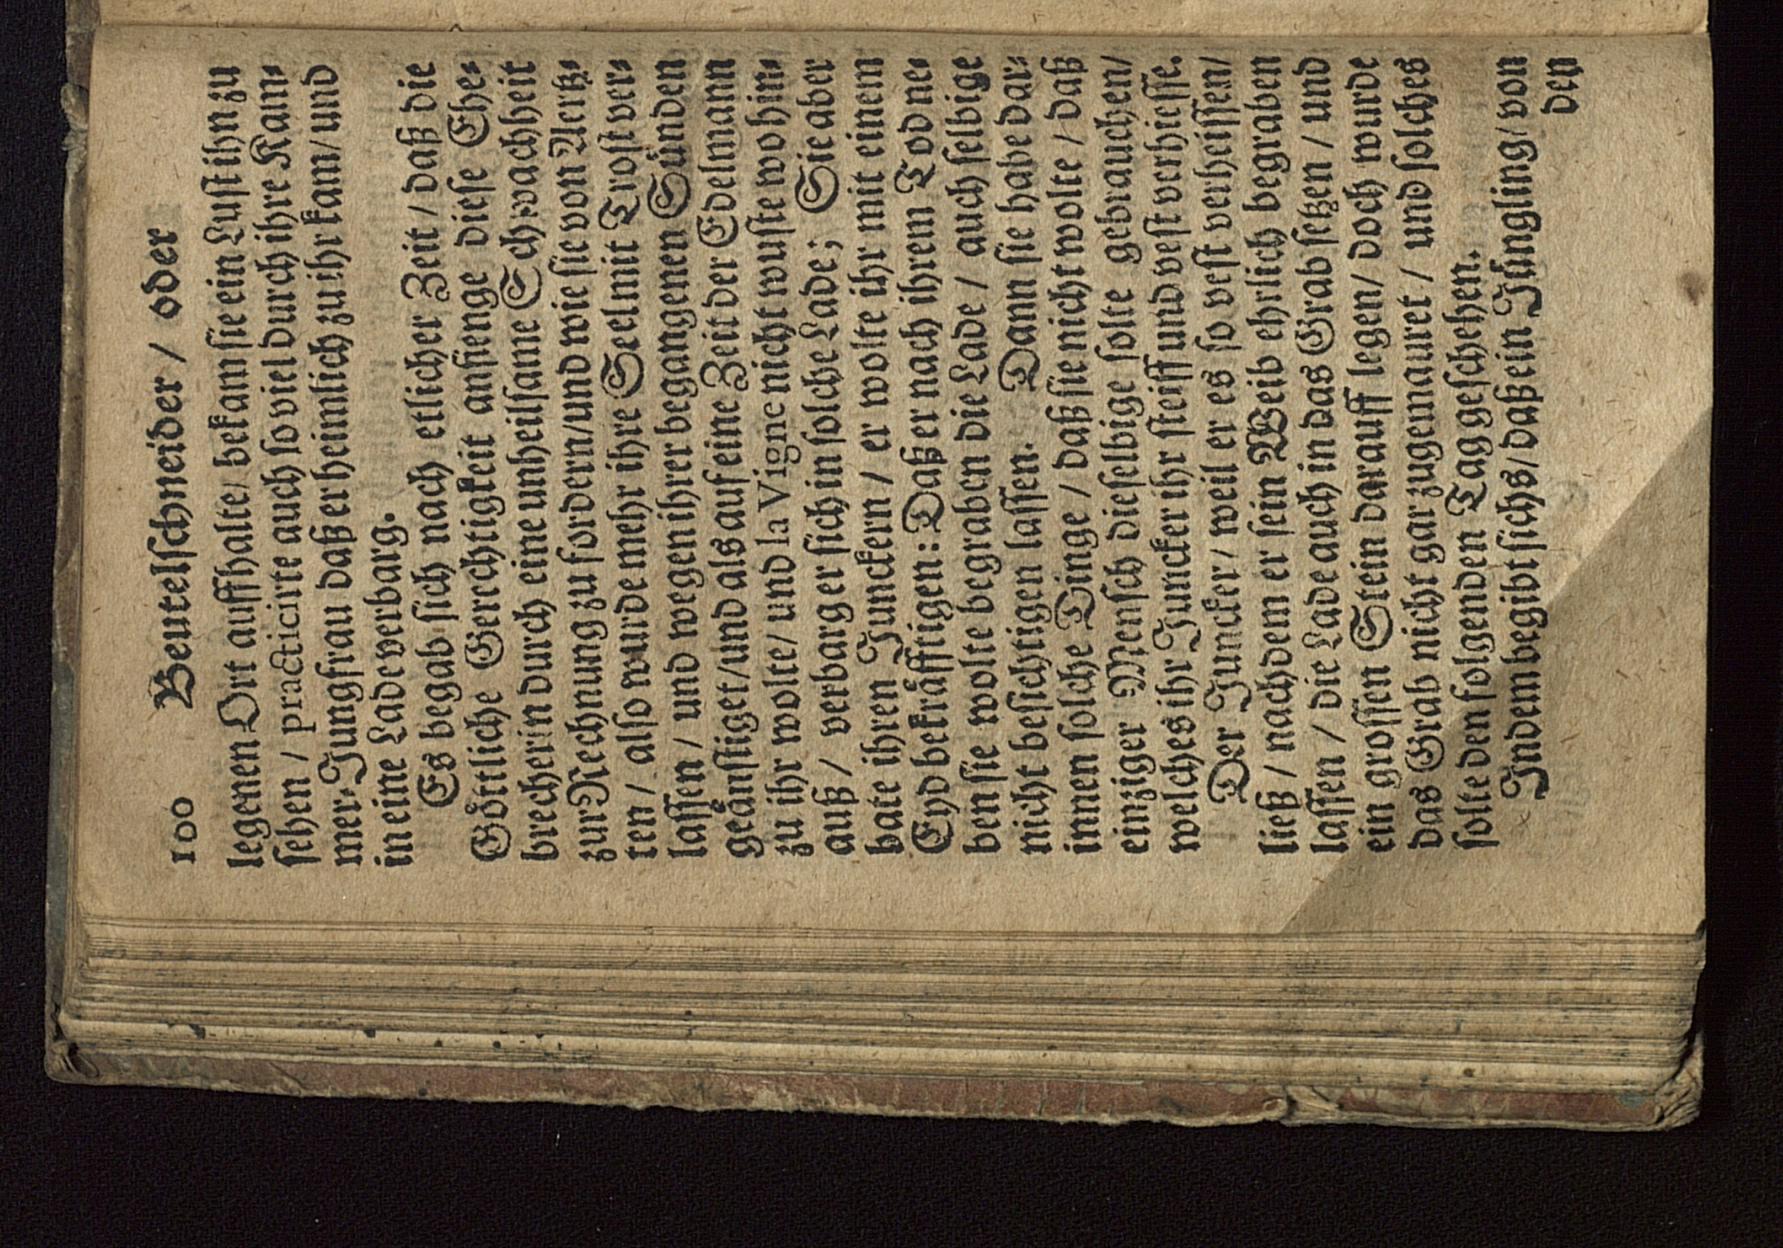 100 Beutelschneider / oder
legenen Ort auffhalte / bekam sie ein Lust ihn zu
sehen / practicirte auch so viel durch ihre Kam⸗
mer⸗Jungfrau daß er heimlich zu ihr kam / und
in eine Lade verbarg.
Es begab sich nach etlicher Zeit / daß die
Goͤttliche Gerechtigkeit anfienge diese Ehe⸗
brecherin durch eine unheilsame Schwachheit
zur Rechnung zu fordern / und wie sie von Aertz⸗
ten / also wurde mehr ihre Seel mit Trost ver⸗
lassen / und wegen ihrer begangenen Suͤnden
geaͤnstiget / und als auf eine Zeit der Edelmann
zu ihr wolte / und la Vigne nicht wuste wo hin⸗
auß / verbarg er sich in solche Lade; Sie aber
bate ihren Junckern / er wolte ihr mit einem
Eyd bekraͤfftigen: Daß er nach ihrem Tod ne⸗
ben sie wolte begraben die Lade / auch selbige
nicht besichtigen lassen. Dann sie habe dar⸗
innen solche Dinge / daß sie nicht wolte / daß
einziger Mensch dieselbige solte gebrauchen /
welches ihr Juncker ihr steiff und vest verhiesse.
Der Juncker / weil er es so vest verheissen /
ließ / nachdem er sein Weib ehrlich begraben
lassen / die Lade auch in das Grab setzen / und
ein grossen Stein darauff legen / doch wurde
das Grab nicht gar zugemauret / und solches
solte den folgenden Tag geschehen.
Indem begibt sichs / daß ein Juͤngling / von
den